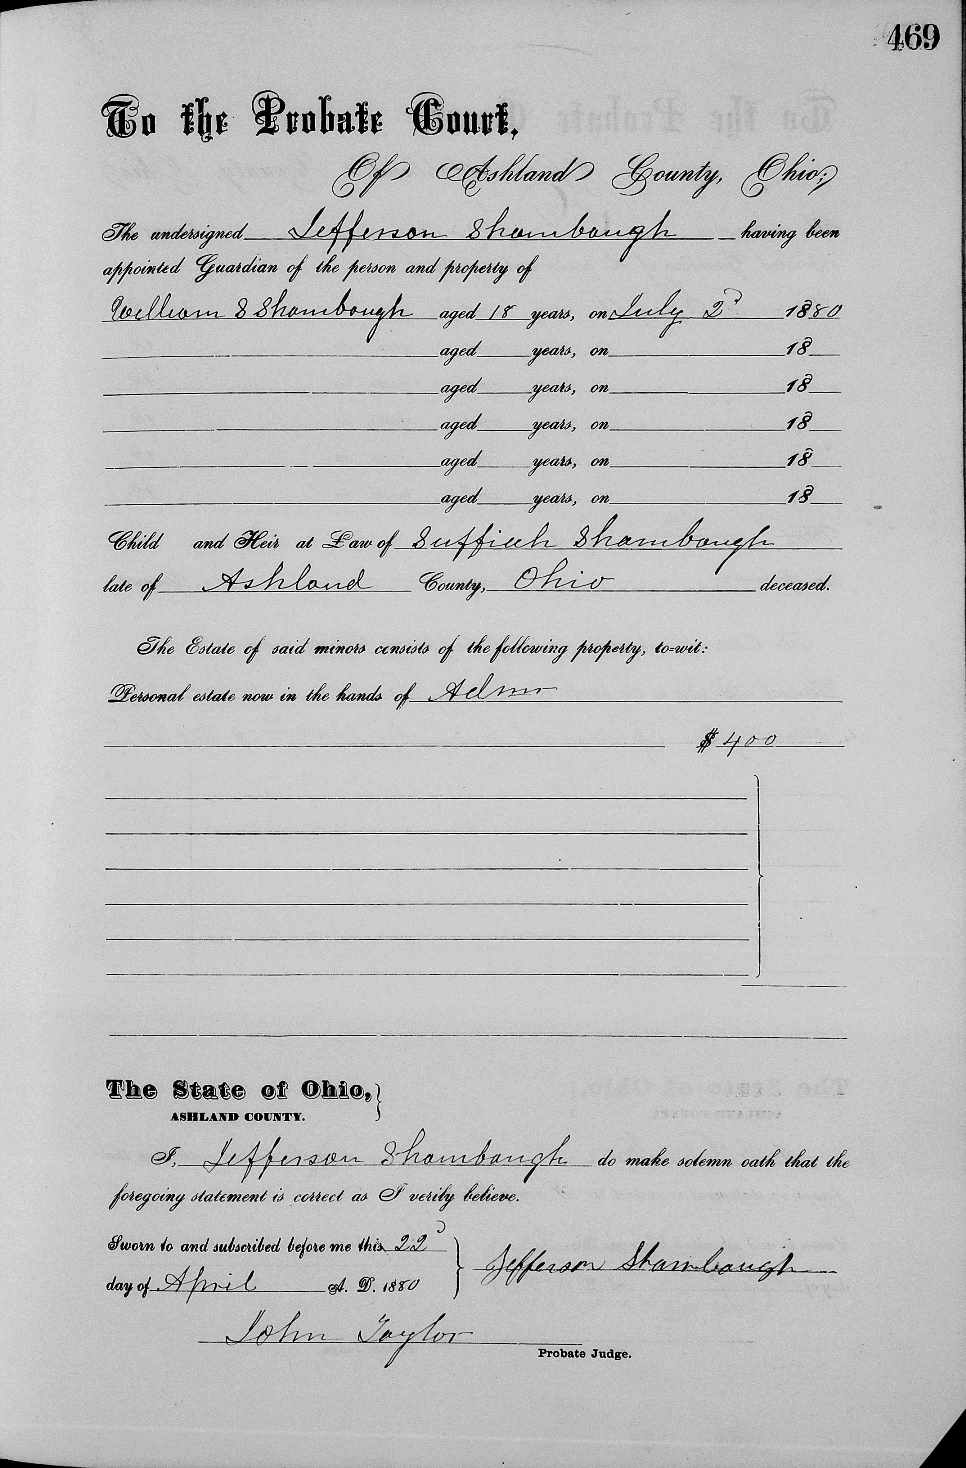 469
To the Probate Court,
Of Ashland County, Ohio;
The undersigned Jefferson Shambaugh having been
appointed Guardian of the person and property of
William S Shambaugh aged 18 years, on July 2d 1880
aged years, on 18
aged years, on 18
aged years, on 18
aged years, on 18
aged years, on 18
Child and Heir at Law of Shambaugh
late of Ashland County, Ohio deceased.
The Estate of said minors consists of the following property, to-wit:
Personal estate now in the hands of Admr
$ 400
The State of Ohio,
ASHLAND COUNTY.
I, Jefferson Shambaugh do make solemn oath that the
foregoing statement is correct as I verily believe.
Sworn to and subscribed before me this 22d
day of April A. D. 1880
Jefferson Shambaugh
John Taylor
Probate Judge.